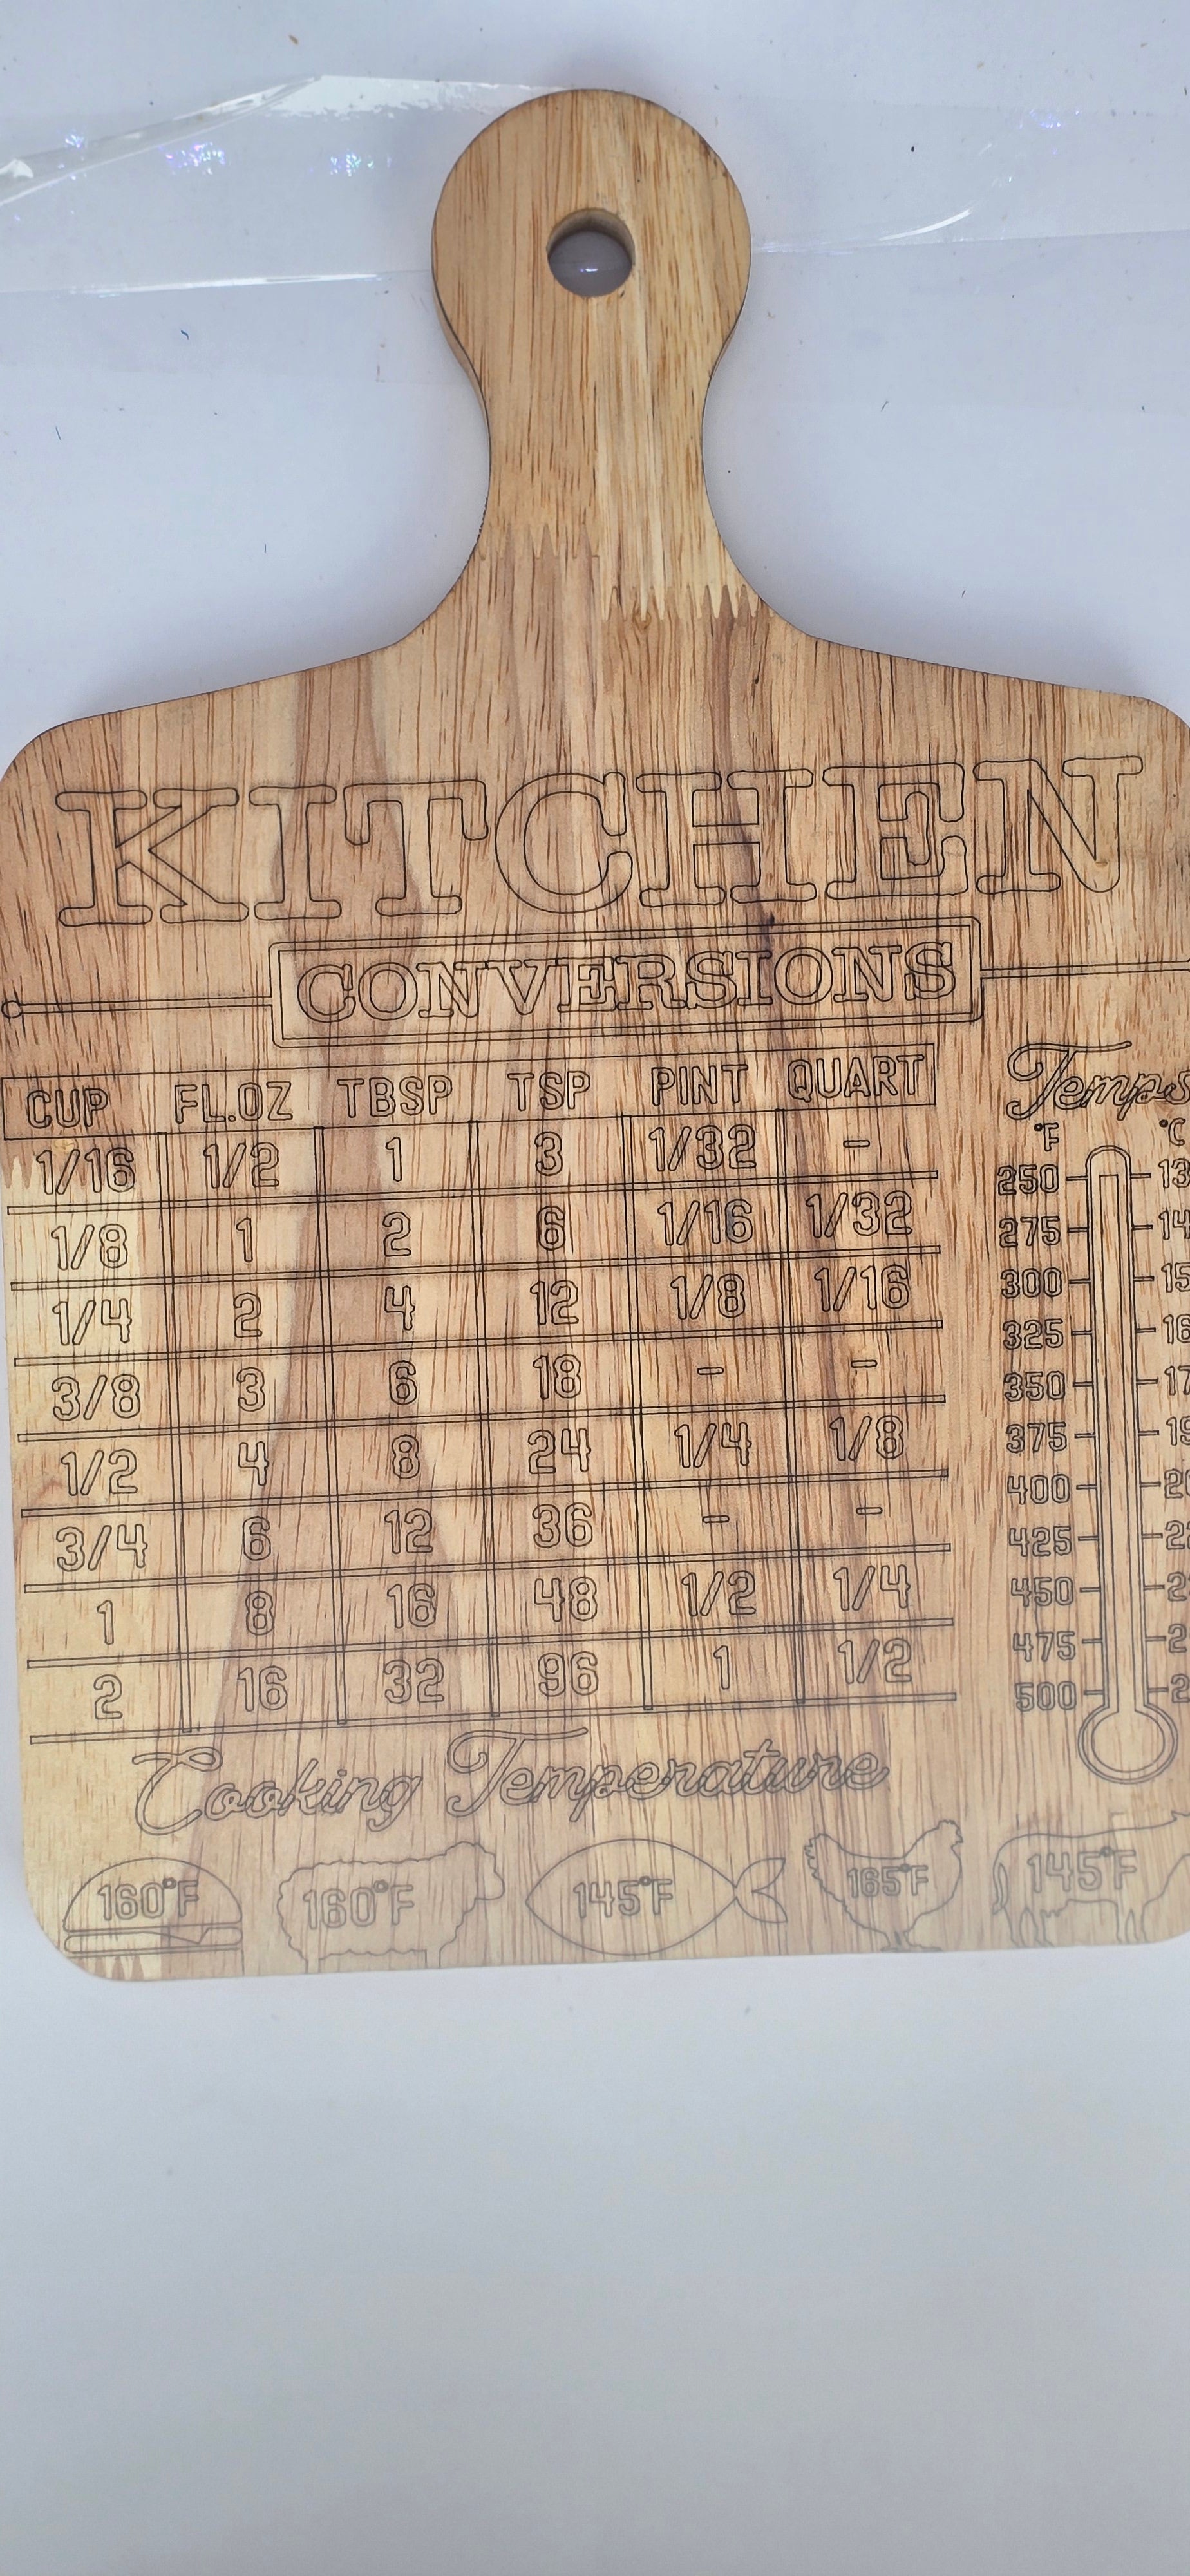 KITCHEN
CONVERSIONS
CUP FL.OZ TBSP TSP PINT QUART
1/16 1/2 1 3 1/32 -
1/8 1 2 6 1/16 1/32
1/4 2 4 12 1/8 1/16
3/8 3 6 18 - -
1/2 4 8 24 1/4 1/8
3/4 6 12 36 - -
1 8 16 48 1/2 1/4
2 16 32 96 1 1/2
Temps
°F °C
250
275
300
325
350
375
400
425
450
475
500
Cooking Temperature
160°F 160°F 145°F 165°F 145°F